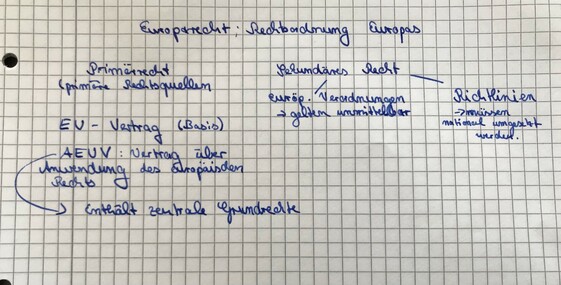 Europarecht: Rechtsordnung Europas
Primärrecht
(primäre Rechtsquellen
Sekundäres Recht
europ. Verordnungen
→ gelten unmittelbar
Richtlinien
→ müssen
national umgesetzt
werden.
EU-Vertrag (Basis)
AEUV: Vertrag über
Anwendung des Europäischen
Rechts
→ Enthält zentrale Grundrechte